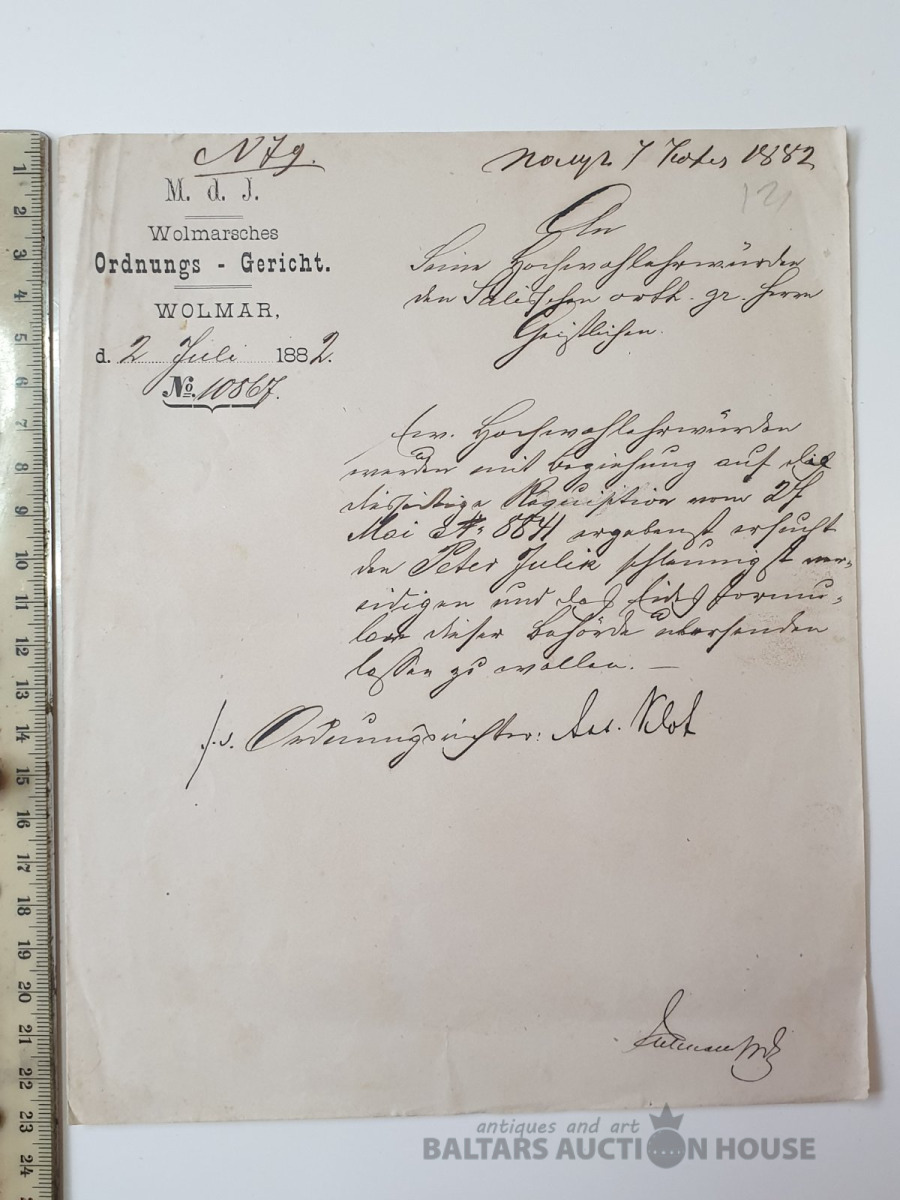 N 79.
M. d. J.
Wolmarsches
Ordnungs - Gericht.
WOLMAR,
d. 2 Juli 1882.
No. 10867.
1882
An
Seine Hochwohlehrwürden
den Salisschen orth. gr. Herrn
Geistlichen.
Ew. Hochwohlehrwürden
werden mit Beziehung auf die
diesseitige Requisition vom 27
Mai 8841 ergebenst ersucht
den Peter Julik schleunigst ver-
eidigen und das Eides Formu-
lar dieser Behörde übersenden
lassen zu wollen. —
f. d. Ordnungsrichter: Ass. Klot
antiques and art
BALTARS AUCTION HOUSE
1
2
3
4
5
6
7
8
9
10
11
12
13
14
15
16
17
18
19
20
21
22
23
24